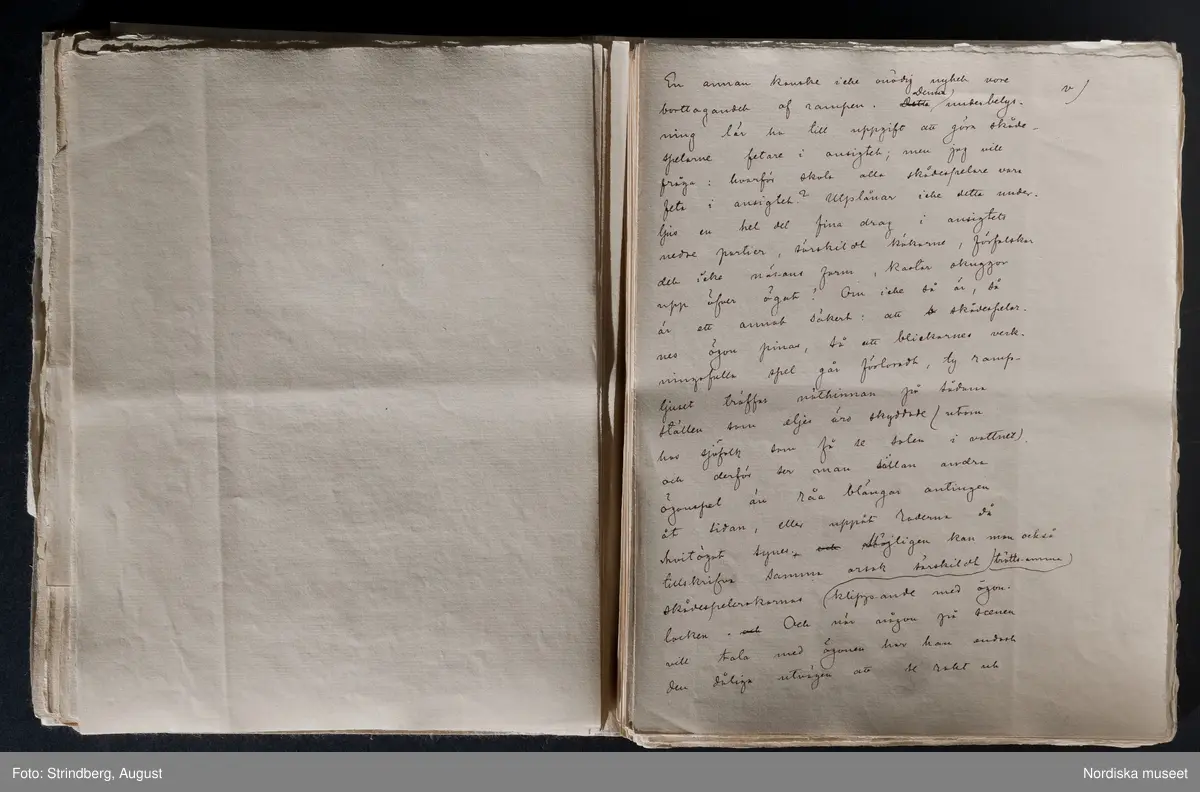 En annan kanske icke onödig nyhet vore
v)
borttagandet af rampen. Detta Denna underbelys-
ning lär ha till uppgift att göra skåde-
spelarne fetare i ansigtet; men jag vill
fråga: hvarför skola alla skådespelare vara
feta i ansigtet? Utplånar icke detta under-
ljus en hel del fina drag i ansigtets
nedre partier, särskildt käkarne, förfalskar
det icke näsans form, kastar skuggor
upp öfver ögat! Om icke så är, så
är ett annat säkert: att skådespelar-
nes ögon pinas, så att blickarnes verk-
ningsfulla spel går förloradt, ty ramp-
ljuset träffar näthinnan på sådana
ställen som eljes äro skyddade (utom
hos sjöfolk som få se solen i vattnet).
och derför ser man sällan andra
ögonspel än råa blängar antingen
åt sidan, eller uppåt raderna då
hvitögat synes. och Möjligen kan man också
tillskrifva samma orsak särskildt tröttsamma
skådespelerskornas klippande med ögon-
locken. och Och når någon på scenen
vill tala med ögonen har han endast
den dåliga utvägen att se rakt ut
Foto: Strindberg, August
Nordiska museet